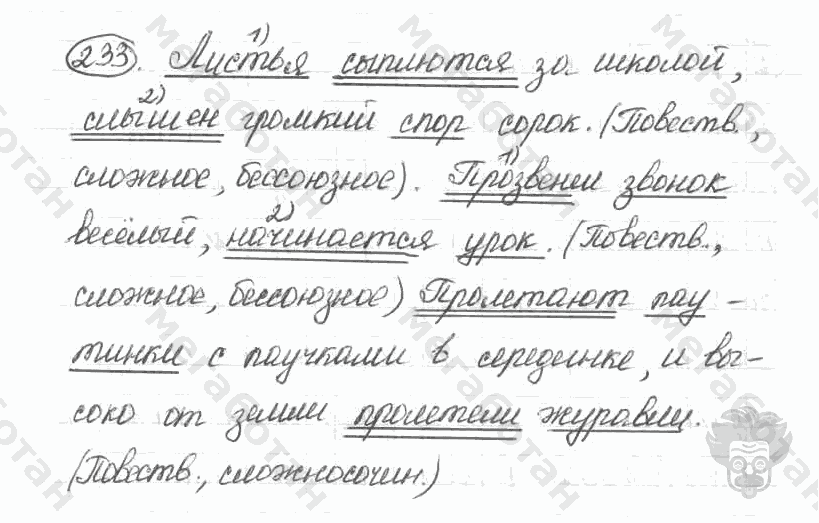 233. Листья 1) сыплются за школой,
слышен 2) громкий спор сорок. (Повеств.,
сложное, бессоюзное). Прозвенел 1) звонок
весёлый, начинается 2) урок. (Повеств.,
сложное, бессоюзное) Пролетают пау-
тинки с паучками в серединке, и вы-
соко от земли пролетели журавли.
(Повеств., сложносочин.)
мегаботан